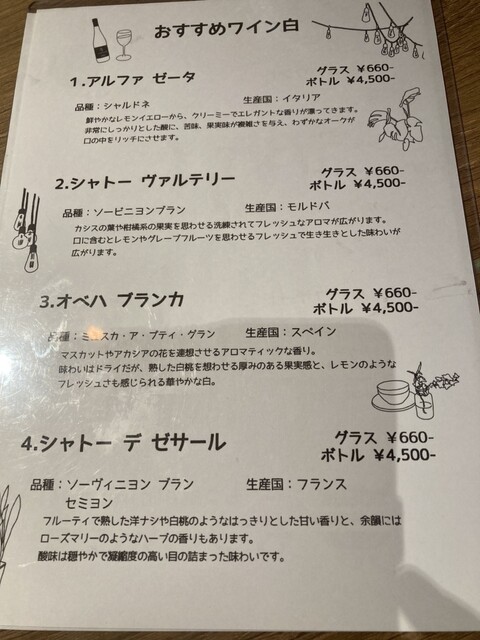 おすすめワイン白
1.アルファ ゼータ
グラス ￥660-
ボトル ￥4,500-
品種：シャルドネ 生産国：イタリア
鮮やかなレモンイエローから、クリーミーでエレガントな香りが漂ってきます。
非常にしっかりとした酸に、苦味、果実味が複雑さを与え、わずかなオークが
口の中をリッチにさせます。
2.シャトー ヴァルテリー
グラス ￥660-
ボトル ￥4,500-
品種：ソービニヨンブラン 生産国：モルドバ
カシスの葉や柑橘系の果実を思わせる洗練されてフレッシュなアロマが広がります。
口に含むとレモンやグレープフルーツを思わせるフレッシュで生き生きとした味わいが
広がります。
3.オベハ ブランカ
グラス ￥660-
ボトル ￥4,500-
品種：ミュスカ・ア・プティ・グラン 生産国：スペイン
マスカットやアカシアの花を連想させるアロマティックな香り。
味わいはドライだが、熟した白桃を想わせる厚みのある果実感と、レモンのような
フレッシュさも感じられる華やかな白。
4.シャトー デ ゼサール
グラス ￥660-
ボトル ￥4,500-
品種：ソーヴィニヨン ブラン 生産国：フランス
セミヨン
フルーティで熟した洋ナシや白桃のようなはっきりとした甘い香りと、余韻には
ローズマリーのようなハーブの香りもあります。
酸味は穏やかで凝縮度の高い目の詰まった味わいです。